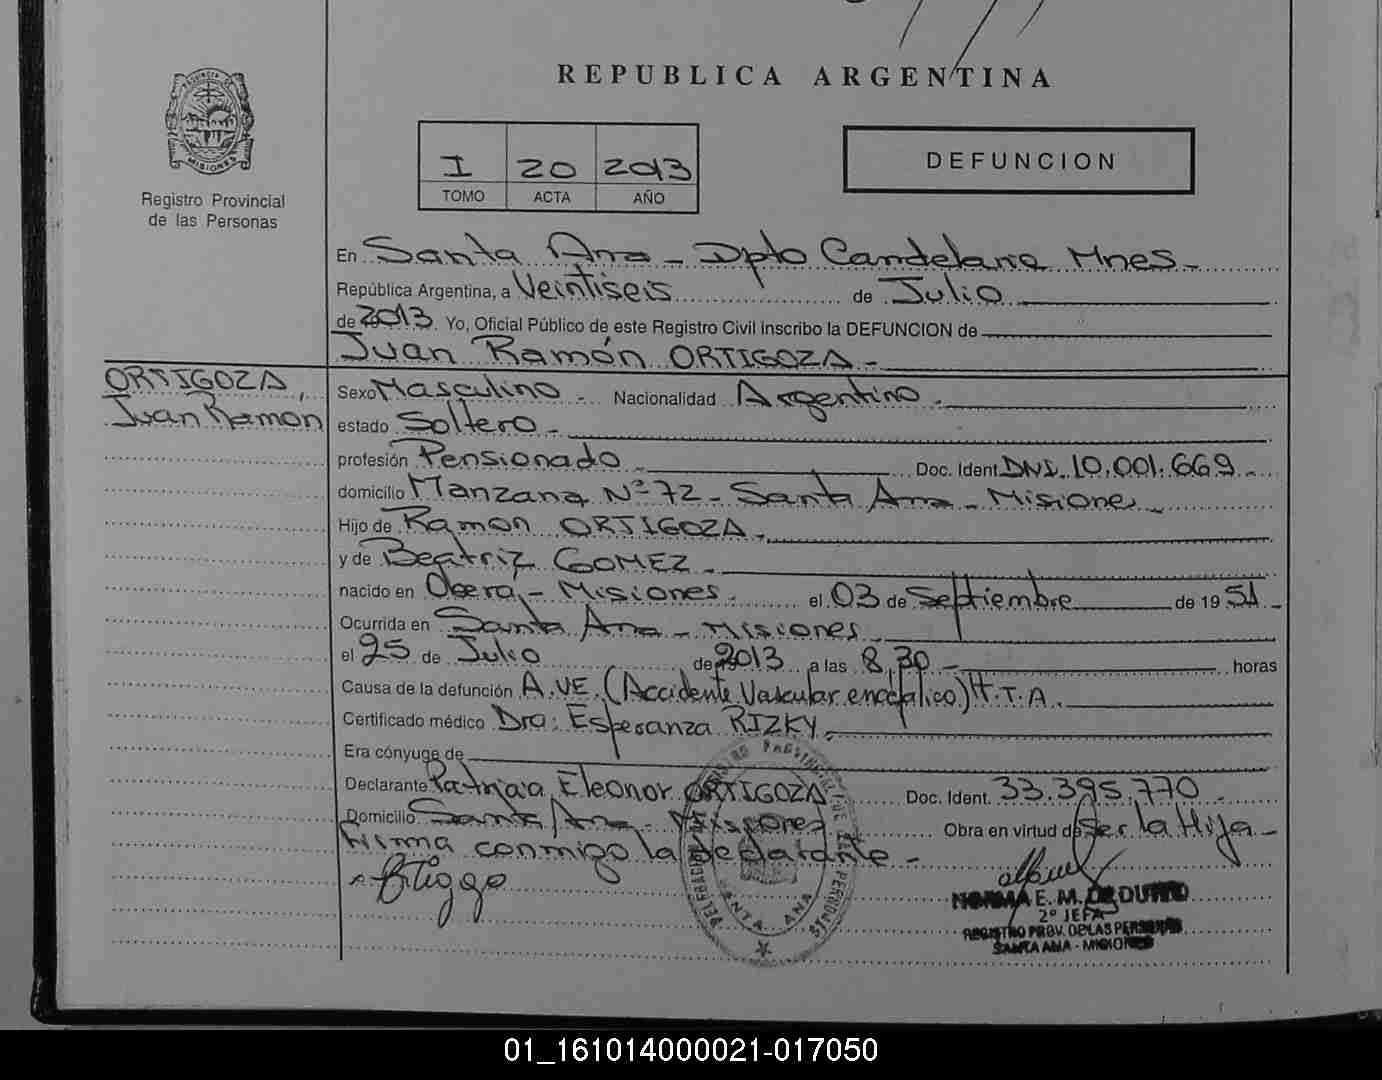 REPUBLICA ARGENTINA
PROVINCIA DE MISIONES
Registro Provincial
de las Personas
I 20 2013
TOMO ACTA AÑO
DEFUNCION
En Santa Ana - Dpto Candelaria Mnes.
República Argentina, a Veintiseis de Julio
de 2013. Yo, Oficial Público de este Registro Civil inscribo la DEFUNCION de
Juan Ramón ORTIGOZA.-
ORTIGOZA,
Juan Ramón
Sexo Masculino. Nacionalidad Argentino.
estado Soltero.
profesión Pensionado Doc. Ident. DNI. 10.001.669.
domicilio Manzana Nº 72 - Santa Ana - Misiones
Hijo de Ramon ORTIGOZA.
y de Beatriz GOMEZ.
nacido en Obera - Misiones. el 03 de Septiembre de 19 51.
Ocurrida en Santa Ana - Misiones
el 25 de Julio de 2013 a las 8,30 horas
Causa de la defunción A.VE. (Accidente Vascular encefalico) H.T.A.
Certificado médico Dra: Esperanza RIZKY.
Era cónyuge de
Declarante Patricia Eleonor ORTIGOZA Doc. Ident. 33.395.770
Domicilio Santa Ana - Misiones Obra en virtud de Ser la Hija -
Firma conmigo la declarante -
SANTA ANA
NORMA E. M. DE
2º JEFA
REGISTRO PROV. DE LAS PERSONAS
SANTA ANA - MISIONES
01_161014000021-017050